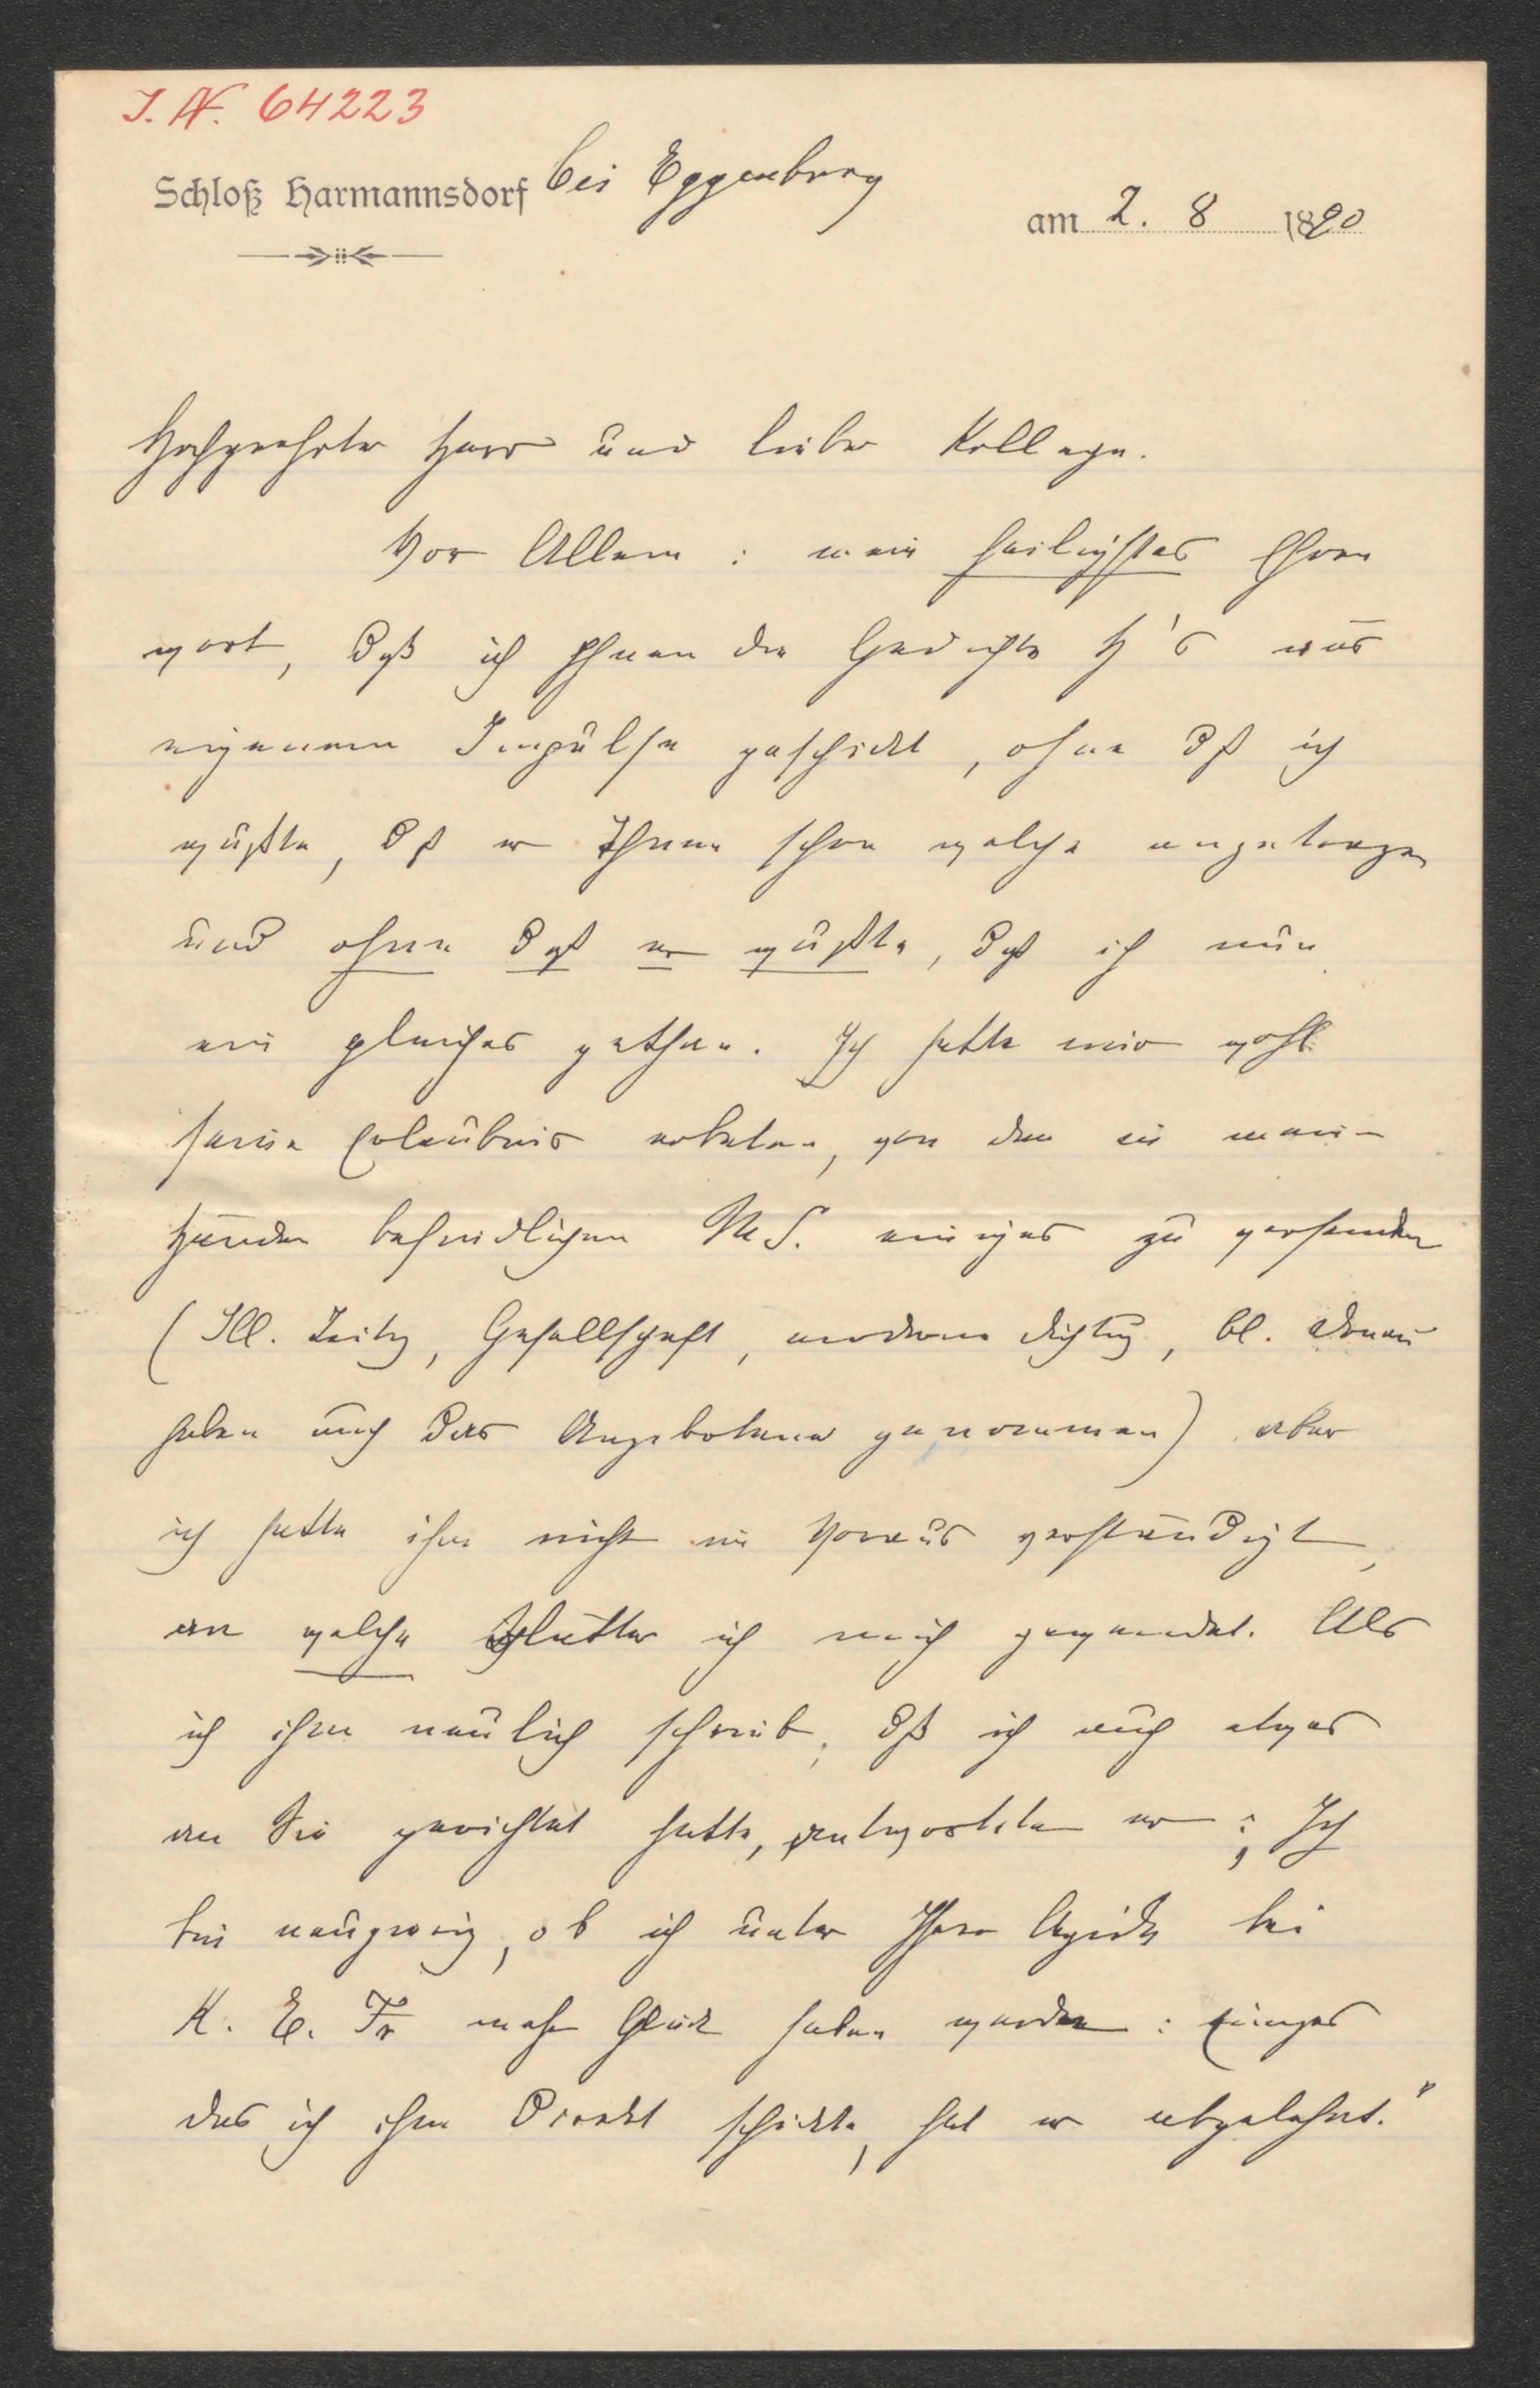 I. N. 64223
Schloß Harmannsdorf bei Eggenburg
am 2. 8 1890
Hochgeehrter Herr und lieber Kollege.
Vor Allem : mein heiligstes Ehren
wort, daß ich Ihnen die Gedichte H's aus
eigenem Impulse geschickt, ohne dß ich
wußte, dß er Ihnen schon welche angetragen
und ohne daß er wußte, daß ich nun
ein gleiches gethan. Ich hatte mir wohl
seine Erlaubnis erbeten, von den in meinen
Händen befindlichen M S. einiges zu versenden
(Ill. Zeitg, Gesellschaft, moderne Dichtg, bl. Donau
haben auch das Angebotene genommen) aber
ich hatte ihn nicht im Voraus verständigt,
an welche Blätter ich mich gewendet. Als
ich ihm neulich schrieb, dß ich auch etwas
an Sie gerichtet hatte, antwortete er : „Ich
bin neugierig, ob ich unter Ihrer Ägide bei
K. E. Fr mehr Glück haben werde : Einiges
das ich ihm direkt schickte, hat er abgelehnt."